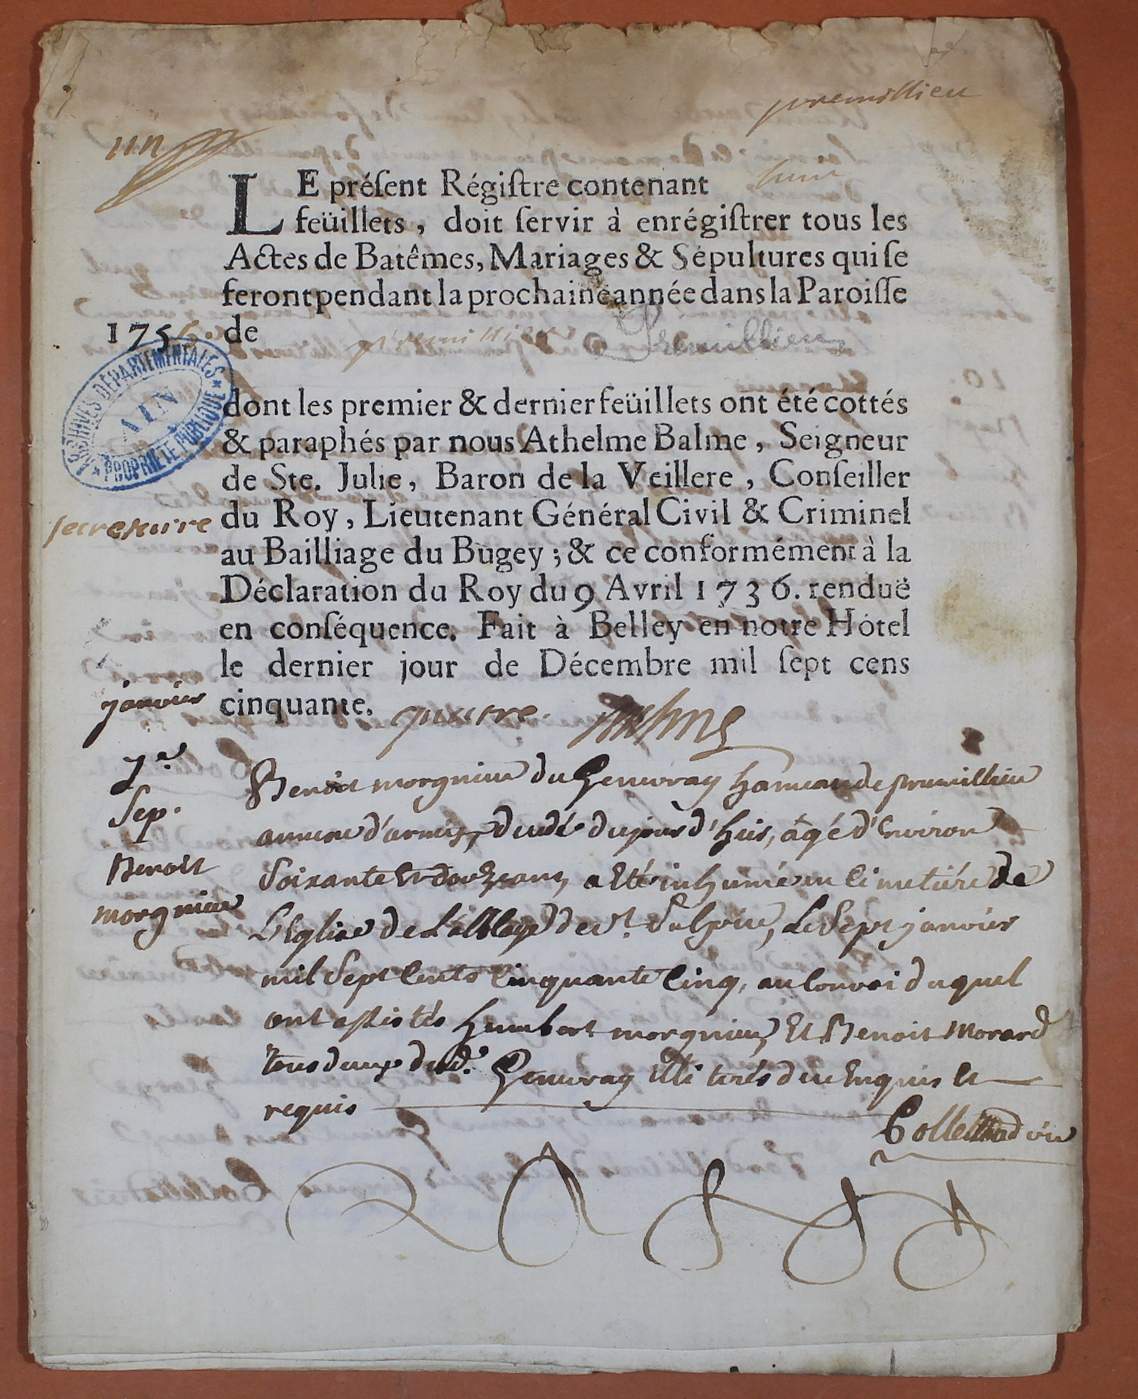 premillieu
un
LE présent Régistre contenant huit
feüillets, doit servir à enrégistrer tous les
Actes de Batêmes, Mariages & Sépultures qui se
feront pendant la prochaine année dans la Paroisse
175 de premillieu Premillieu
ARCHIVES DÉPARTEMENTALES
AIN
PROPRIÉTÉ PUBLIQUE
dont les premier & dernier feüillets ont été cottés
& paraphés par nous Athelme Balme, Seigneur
de Ste. Julie, Baron de la Veillere, Conseiller
secretaire du Roy, Lieutenant Général Civil & Criminel
au Bailliage du Bugey; & ce conformément à la
Déclaration du Roy du 9 Avril 1736. renduë
en conséquence. Fait à Belley en notre Hôtel
le dernier jour de Décembre mil sept cens
cinquante. quatre.
janvier
7e
Sep.
Benoit
morgnieu
Benoit morgnieu du Genevray hameau de premillieu
décédé du jour d'hui, âgé d'Environ
Soixante Et douze ans, a Eté inhumé au Cimetiére de
L'Eglise de L'abbaye de st. Sulpice, Le Sept janvier
mil Sept Cents Cinquante Cinq, au Convoi duquel
ont assistés humbert morgnieu, Et Benoit Morard
tous deux dud. Genevray illiterés de ce Enquis Et
requis